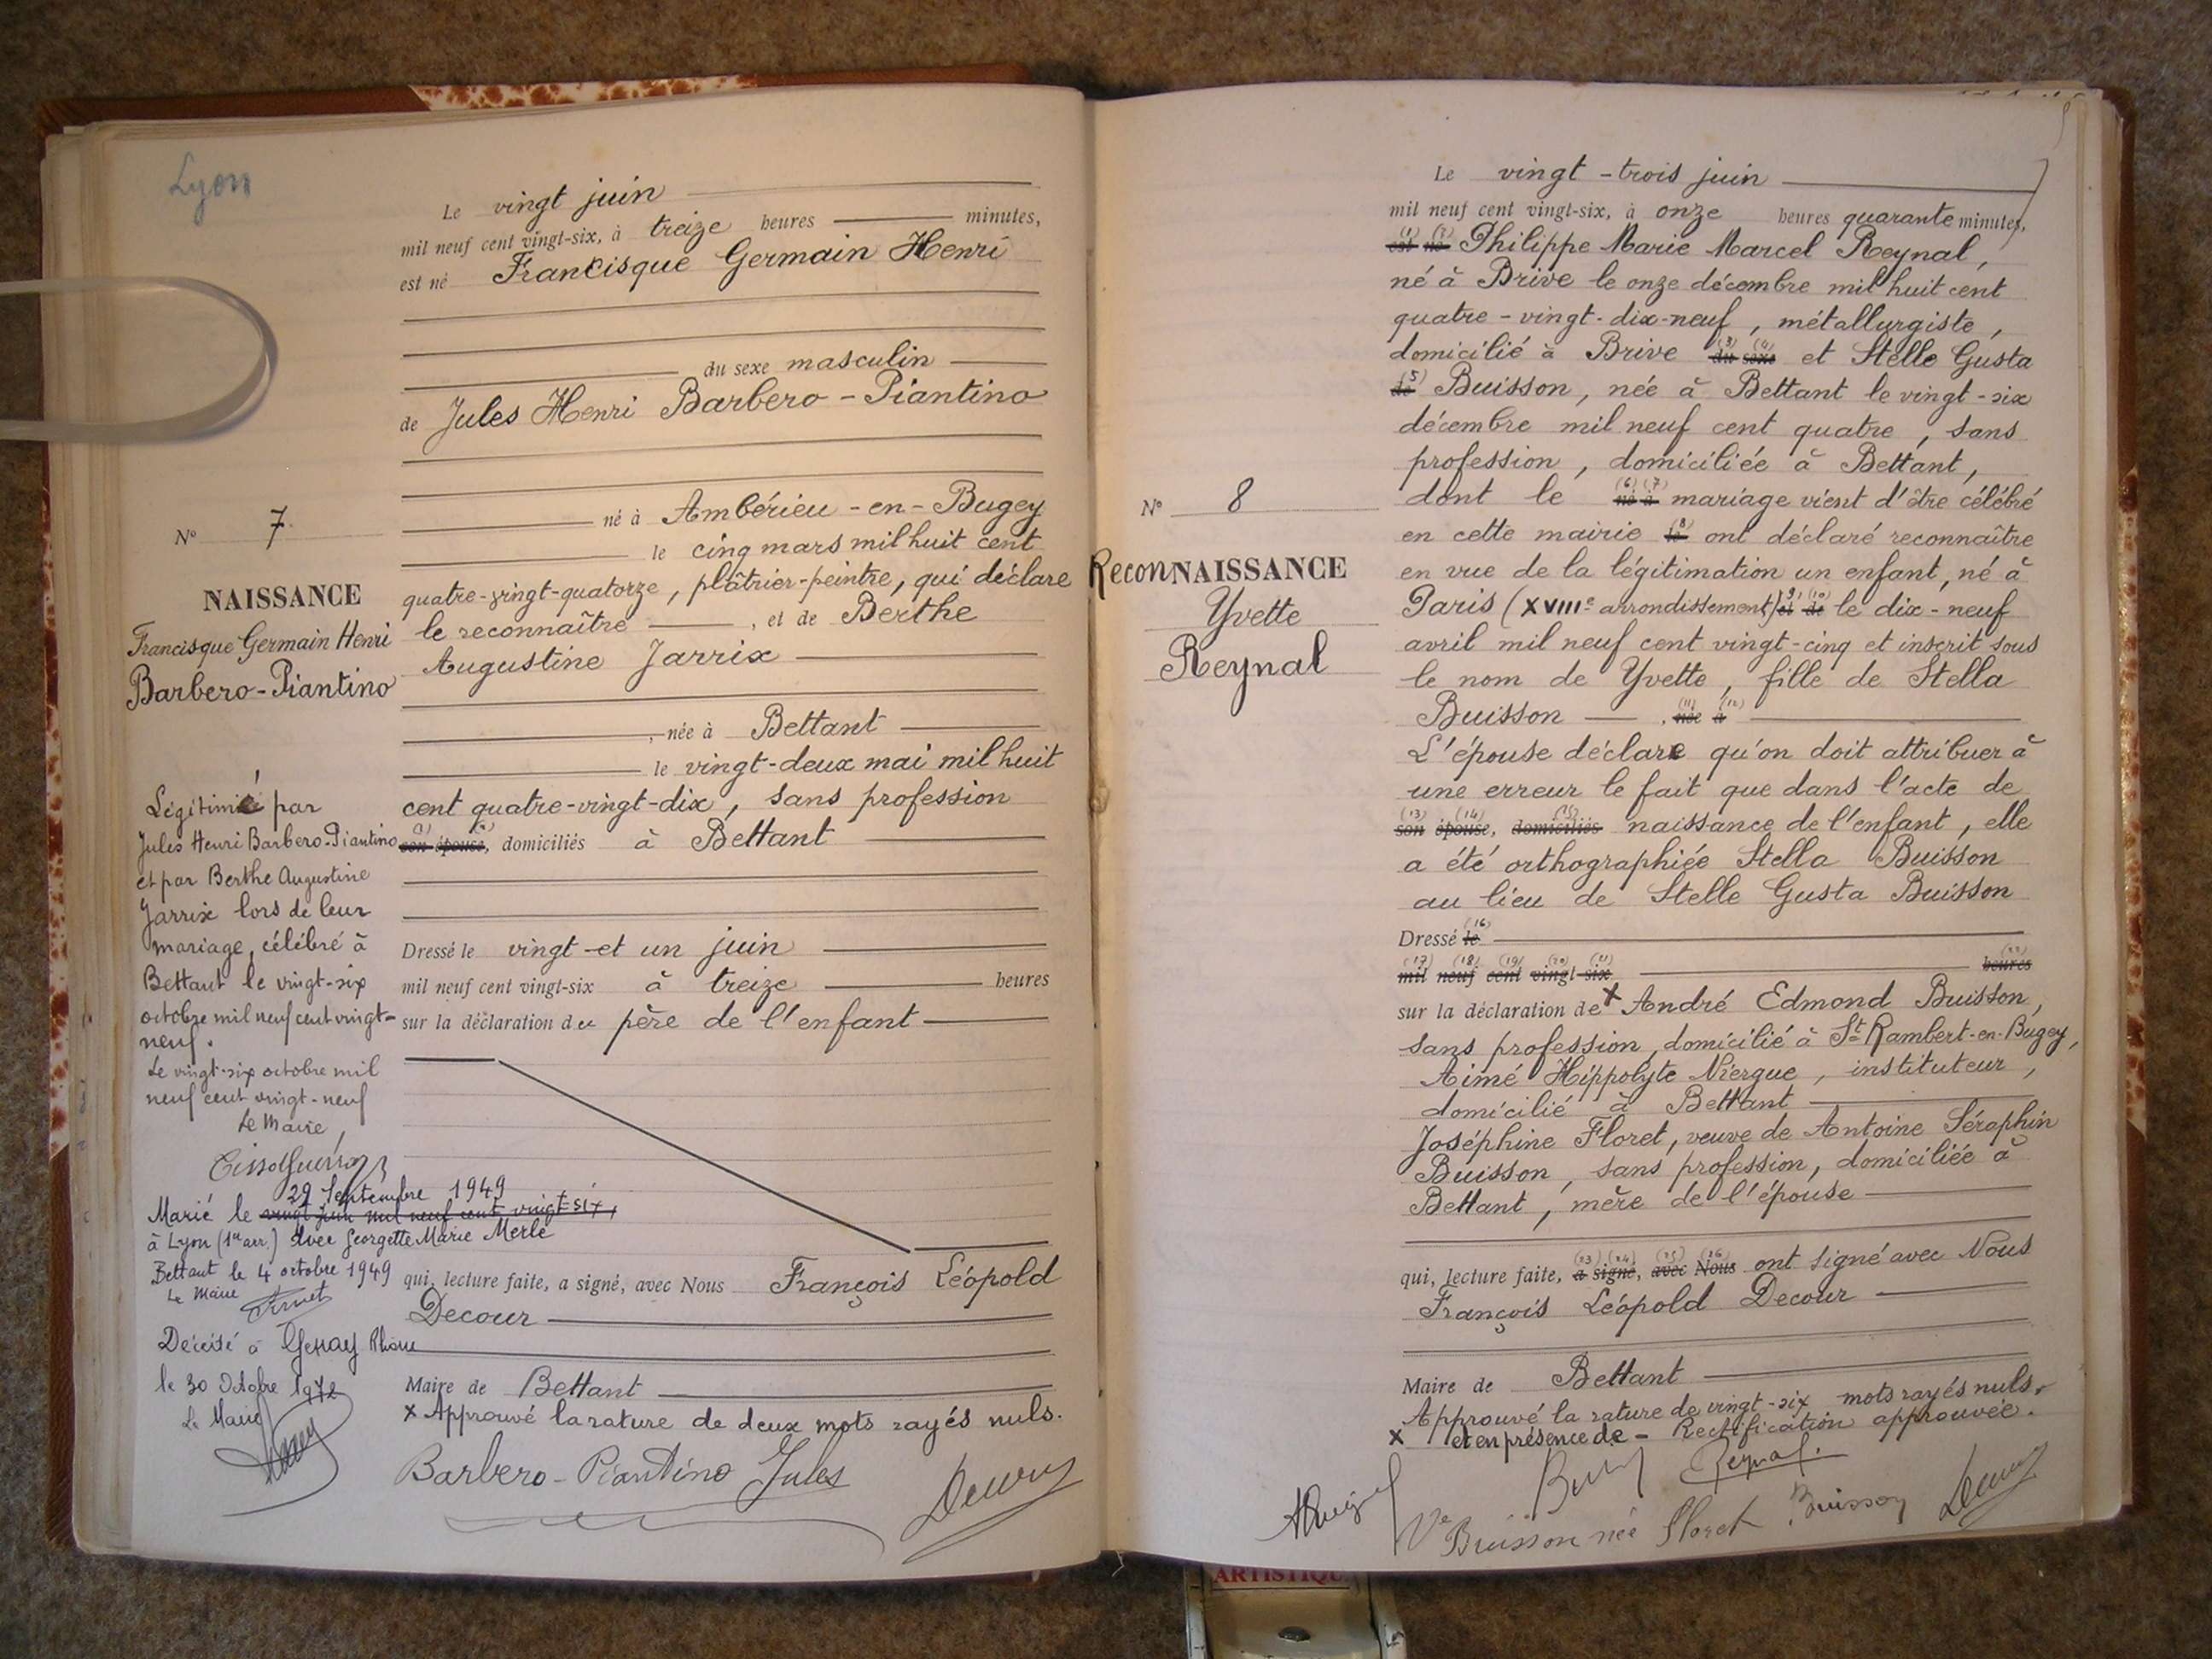 Lyon
Le vingt juin
mil neuf cent vingt-six, à treize heures minutes,
est né Francisque Germain Henri
du sexe masculin
de Jules Henri Barbero-Piantino
né à Ambérieu-en-Bugey
le cinq mars mil huit cent
quatre-vingt-quatorze, plâtrier-peintre, qui déclare
le reconnaître, et de Berthe
Augustine Jarrix
, née à Bettant
le vingt-deux mai mil huit
cent quatre-vingt-dix, sans profession
(1) (2)
son épouse, domiciliés à Bettant
Dressé le vingt-et un juin
mil neuf cent vingt-six à treize heures
sur la déclaration du père de l'enfant
qui, lecture faite, a signé, avec Nous François Léopold
Decour
Maire de Bettant
x Approuvé la rature de deux mots rayés nuls.
Barbero-Piantino Jules
Decour
N° 7.
NAISSANCE
Francisque Germain Henri
Barbero-Piantino
Légitimé par
Jules Henri Barbero-Piantino
et par Berthe Augustine
Jarrix lors de leur
mariage, célébré à
Bettant le vingt-six
octobre mil neuf cent vingt-
neuf.
Le vingt-six octobre mil
neuf cent vingt-neuf
Le Maire,
29 Septembre 1949
Marié le vingt juin mil neuf cent vingt-six,
à Lyon (1er arr.) avec Georgette Marie Merle
Bettant le 4 octobre 1949
Le Maire
Décédé à Genay Rhône
le 30 Octobre 1972
Le Maire
Le vingt-trois juin
mil neuf cent vingt-six, à onze heures quarante minutes,
(1) (2)
est né Philippe Marie Marcel Reynal,
né à Brive le onze décembre mil huit cent
quatre-vingt-dix-neuf, métallurgiste,
(3) (4)
domicilié à Brive du sexe et Stelle Gusta
(5)
de Buisson, née à Bettant le vingt-six
décembre mil neuf cent quatre, sans
profession, domiciliée à Bettant,
(6) (7)
dont le né à mariage vient d'être célébré
(8)
en cette mairie le ont déclaré reconnaître
en vue de la légitimation un enfant, né à
(9) (10)
Paris (XVIIIe arrondissement) et de le dix-neuf
avril mil neuf cent vingt-cinq et inscrit sous
le nom de Yvette, fille de Stella
(11) (12)
Buisson , née à
L'épouse déclare qu'on doit attribuer à
une erreur le fait que dans l'acte de
(13) (14) (15)
son épouse, domiciliés naissance de l'enfant, elle
a été orthographiée Stella Buisson
au lieu de Stelle Gusta Buisson
(16)
Dressé le
(17) (18) (19) (20) (21) (22)
mil neuf cent vingt-six heures
sur la déclaration de x André Edmond Buisson,
sans profession, domicilié à St Rambert-en-Bugey,
Aimé Hippolyte Niergue, instituteur,
domicilié à Bettant
Joséphine Floret, veuve de Antoine Séraphin
Buisson, sans profession, domiciliée à
Bettant, mère de l'épouse
(23) (24) (25) (26)
qui, lecture faite, a signé, avec Nous ont signé avec Nous
François Léopold Decour
Maire de Bettant
Approuvé la rature de vingt-six mots rayés nuls.
x et en présence de - Rectification approuvée.
Reynal
Ve Buisson née Floret Buisson Decour
N° 8
ReconNAISSANCE
Yvette
Reynal
ARTISTIQU